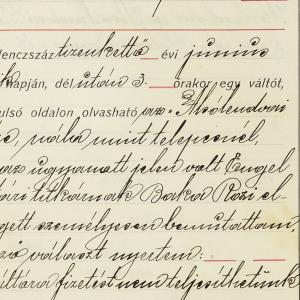 lenczszáz tizenkettő évi június
napján, dél után 3. órakor egy váltót,
ulsó oldalon olvasható az "Alsólendvai
nála mint telepesnél,
az ugyanott jelen volt Engel
titkárnak Baka Rózi el-
jett személyesen bemutattam,
választ nyertem:
fizetést nem teljesíthetünk